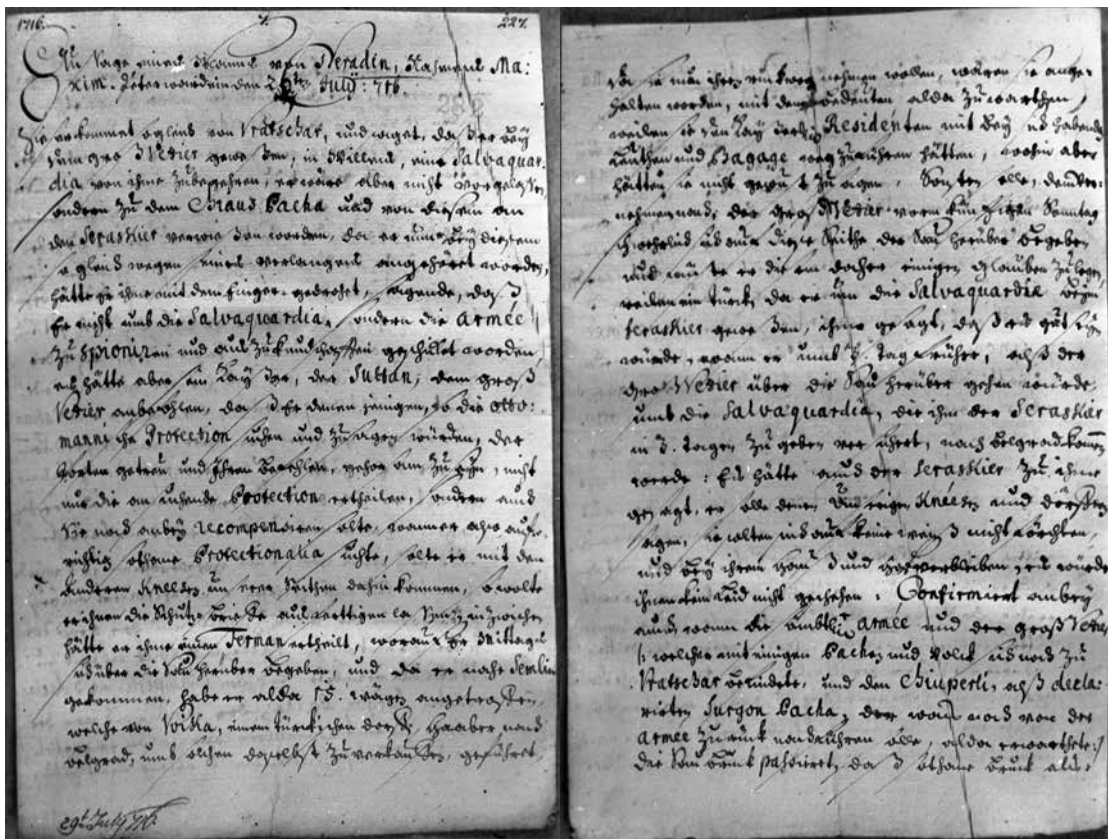 1716. 227.
Zu Sage eines von Neradin, Nahmens Ma:
xim. Peterwardein den July: 716.
kommet von Vratschar, und saget, daß er bey
dem groß Vezier gewesen, in Willens, eine Salvaquar
dia von ihme zu begehren, er wäre aber nicht vorgelassen
sondern zu dem Chiaus Pacha und von diesem an
den Seraskier verwiesen worden, da er nun bey diesem
sogleich wegen seines verlangens angehöret worden,
hätte Er ihme mit dem finger gedrohet, sagende, daß
Er nicht umb die Salvaquardia, sondern die Armée
zu spioniren und auszukundschafften geschicket worden,
es hätte aber sein Kayser, der Sultan, dem groß
Vezier anbefohlen, daß Er denen jenigen, so die otto:
mannische Protection suchen und zusagen würden, der
Porten getreu und Ihren Befehlen gehorsam zu seyn, nicht
nur die ansuchende Protection ertheilen, sondern auch
Sie noch anbey recompensiren solte, wann er also auf:
richtig sothane Protectionalia suchte, solte er mit den
anderen Kneesen dahin kommen, so wolte
er ihnen die Schutz briefe ausfertigen lassen, inzwischen
hätte er ihme einen Ferman ertheilt, worauf Er Mittags
sich über die Sau herüber begeben, und da er nahe Semlin
gekommen, habe er alda 15. wägen angetroffen,
welche von Voika, einem türckischen dorff, haaber nach
Belgrad, umb solchen daselbst zu verkauffen, geführet.
29t July 716.
Da sie nun ihren ruckweeg nehmen wollen, wären sie ange:
halten worden, mit dem bedeuten alda zu warthen,
weilen sie den Kayserlichen Residenten mit bey sich habenden
Leüthen und Bagage weg zu führen hätten, wohin aber
hätten sie nicht gewust zu sagen. Sonsten solle, dem Ver:
nehmen nach, der Groß Vezier vorm Sonntag
sich auf diese Seithe der Sau herüber begeben
und müste er diesem daher einigen glauben zulegen,
weilen ein Türck, da er umb die Salvaquardie beym
Seraskier gewesen, ihme gesagt, daß es gut seyn
würde, wann er umb tag früher, alß der
Groß Vezier über die Sau herüber gehen würde,
umb die Salvaquardia, die ihm der Seraskier
in 3. tagen zu geben versichert, nach Belgrad kommen
werde: Es hätte auch der Seraskier zu ihme
gesagt, er solle denen Kneesen und dörffern
sagen, sie solten sich auf keine weiß nicht förchten,
und bey ihrem Hauß und Hoff verbleiben, es würde
ihnen kein Leid nicht geschehen. Confirmiert anbey
auch, wann die sämbtliche Armée und der groß Vezier
/: welcher mit einigen Pachen und Volck sich noch zu
Vratschar befindete, und den Chiuperli, alß decla:
rirten Surgon Pacha, der noch von der
Armée zurück solle, alda erwarthete :/
die Sau bruck passieret, daß sothane bruck als: